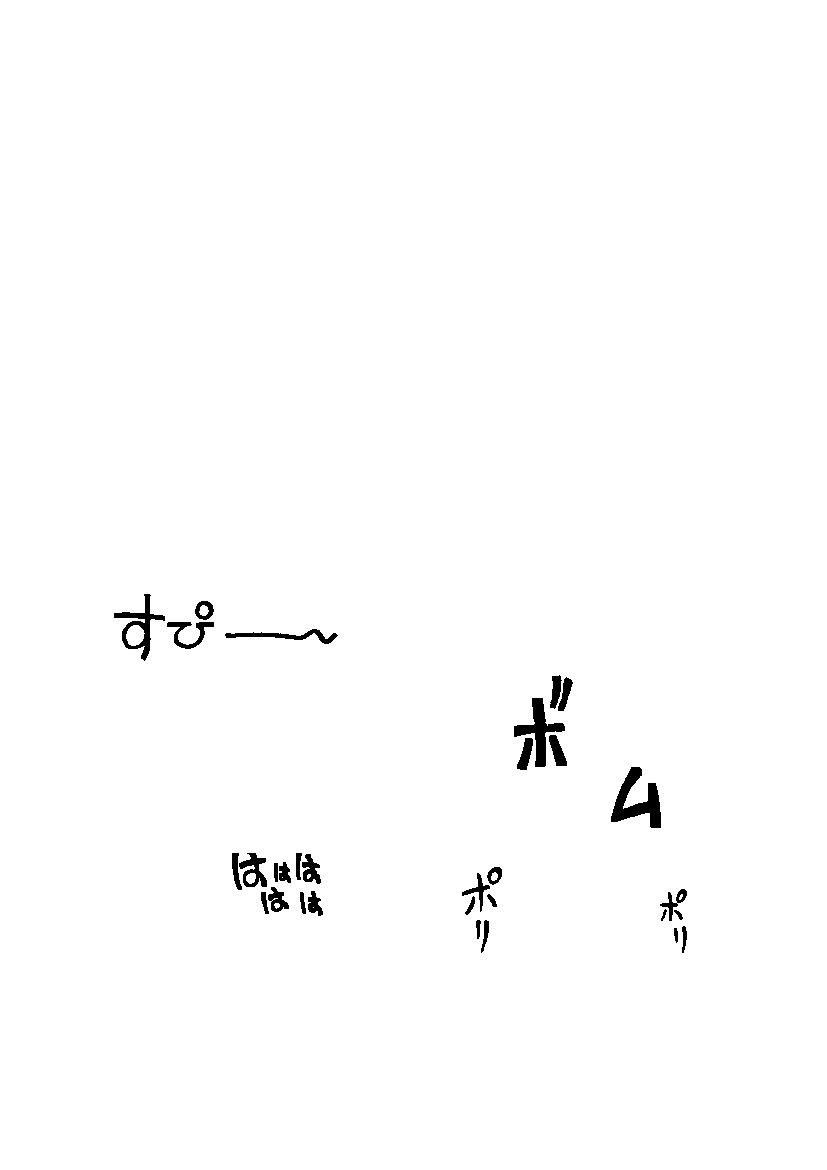 すぴ――〜
ボム
ははは
はは
ポリ
ポリ